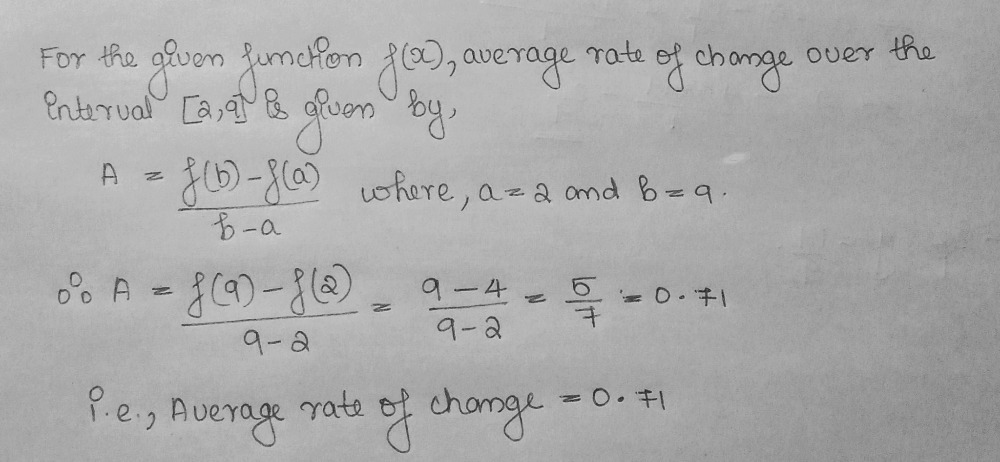 For the given function f(x), average rate of change over the
interval [2,9] is given by,
A = f(b)-f(a) / b-a where, a=2 and b=9.
∴ A = f(9)-f(2) / 9-2 = 9-4 / 9-2 = 5/7 = 0.71
i.e., Average rate of change = 0.71